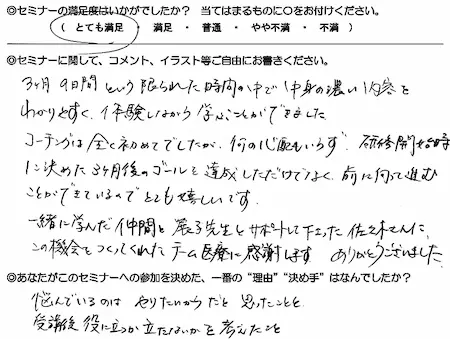 ◎セミナーの満足度はいかがでしたか？ 当てはまるものに○をお付けください。
（ とても満足 ・ 満足 ・ 普通 ・ やや不満 ・ 不満 ）
◎セミナーに関して、コメント、イラスト等ご自由にお書きください。
3ヶ月 9日間 という 限られた時間の中で 中身の濃い内容を
わかりやすく、体験しながら 学ぶことができました
コーチングは 全く初めてでしたが、何の心配もいらず、研修開始時
に決めた 3ヶ月後のゴールを達成しただけでなく、前に向って進む
ことができているので とても嬉しいです。
一緒に学んだ仲間と 先生とサポートして下さった 佐々木さんに、
この機会をつくってくれた チーム医療に感謝します ありがとうございました
◎あなたがこのセミナーへの参加を決めた、一番の“理由”“決め手”はなんでしたか？
悩んでいるのは やりたいからだと 思ったことと
受講後 役に立つか立たないかを考えたこと